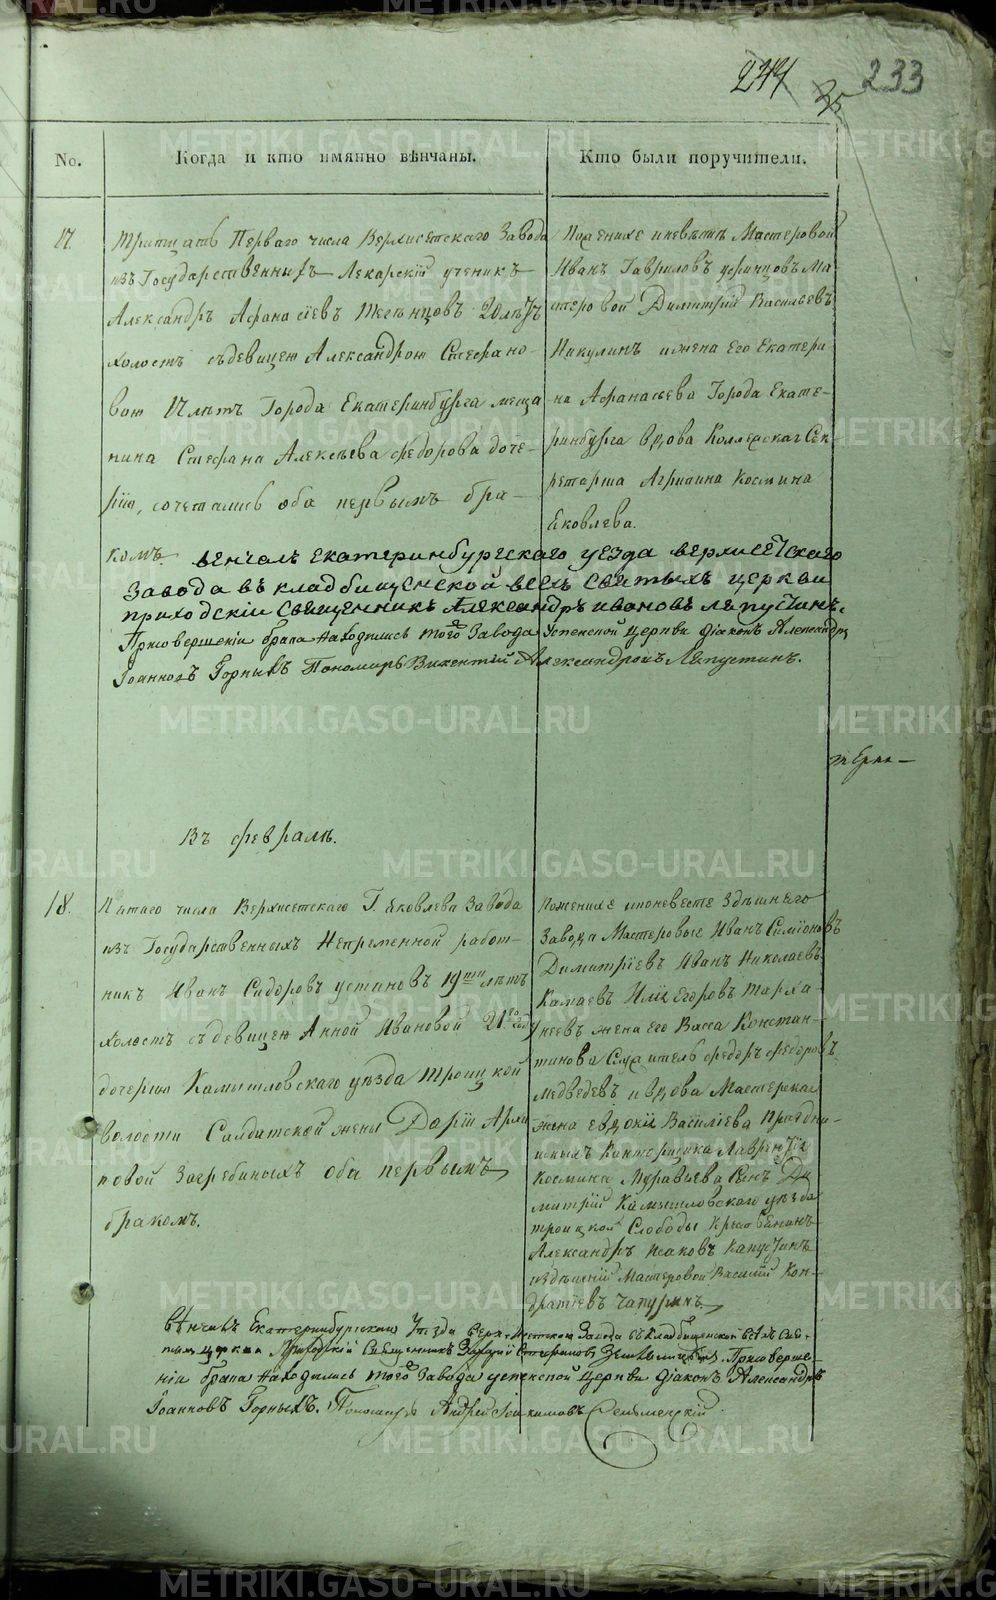 244 35 233
No. Когда и кто имянно вѣнчаны. Кто были поручители.
17. Тритцать Перваго числа Верхисетскаго Завода
изъ Государственныхъ Лекарскій ученикъ
Александръ Афанасіевъ 20 лѣтъ
холостъ съ девицею Александрою Стефано-
вою 17 лѣтъ Города Екатеринбурга меща
нина Стефана Алексѣева Федорова доче-
рію, сочетались оба первымъ бра-
комъ.
По женихе и невѣсте Мастеровой
Иванъ Гавриловъ Ма-
стеровой Димитрій Васильевъ
Никулинъ и жена его Екатери-
на Афанасьева Города Екате-
ринбурга вдова Коллежскаг Сек-
ретарша Агрипина Космина
Яковлева.
венчалъ Екатеринбургскаго уезда верхисетскаго
завода въ кладбищенской всехъ святыхъ церкви
приходскій священникъ Александръ ивановъ лапустинъ.
При совершеніи брака находились того Завода Успенской церкви діаконъ Александръ
Іоанновъ Горныхъ Пономарь Викентій Александровъ Лапустинъ.
Въ февралѣ.
18. Пятаго числа Верхисетскаго Г. Яковлева Завода
изъ Государственныхъ Непременной работ-
никъ Иванъ Сидоровъ устиновъ 19ти лѣтъ
холостъ съ девицею Анной Ивановой 21го
дочерью Камышловскаго уѣзда Троицкой
волости Салдатской жены Даріи
Загребиныхъ оба первымъ
бракомъ.
По женихе и по невесте Здешняго
Завода Мастеровые Иванъ Симіоновъ
Димитріевъ Иванъ Николаевъ
Камаевъ Илія Егоровъ Тарха-
неевъ жена его Васса Констан-
тинова Служитель Федоръ Федоровъ
Медведевъ и вдова Мастерская
жена евдокія Василіева
Конторщика Лаврентія
Космина Муравьева Сынъ Ди
митрій Камышловскаго уѣзда
троицкой Слободы Крестьянинъ
Александръ Исаковъ Капустинъ
и здешній Мастеровой Василій Кон-
дратіевъ Чапуринъ.
вѣнчалъ Екатеринбургскаго Уезда Верхисетскаго Завода въ Кладбищенской всѣхъ Свя-
тыхъ церкви Приходскій Священникъ При соверше-
ніи брака находились того Завода успенской церкви діаконъ Александръ
Іоанновъ Горныхъ. Пономарь Андрей Іоакимовъ